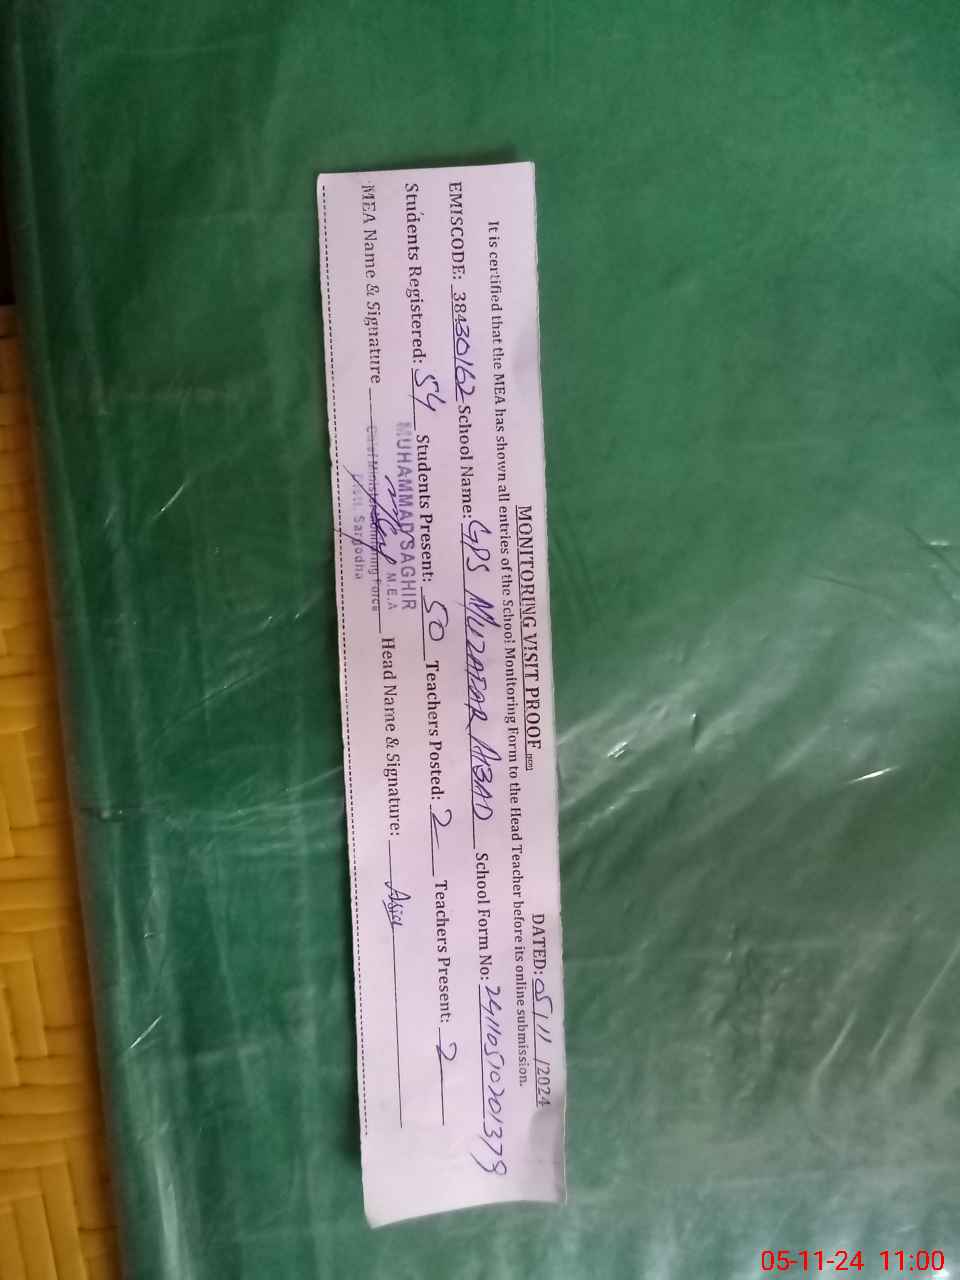 MONITORING VISIT PROOF
DATED: 05/11/2024
It is certified that the MEA has shown all entries of the School Monitoring Form to the Head Teacher before its online submission.
EMISCODE: 38430162 School Name: GPS MUZAFAR ABAD School Form No:
Students Registered: 54 Students Present: 50 Teachers Posted: 2 Teachers Present: 2
MUHAMMAD SAGHIR
M.E.A
MEA Name & Signature Head Name & Signature: Asia
Chief Minister Monitoring Force
Distt. Sargodha
05-11-24 11:00